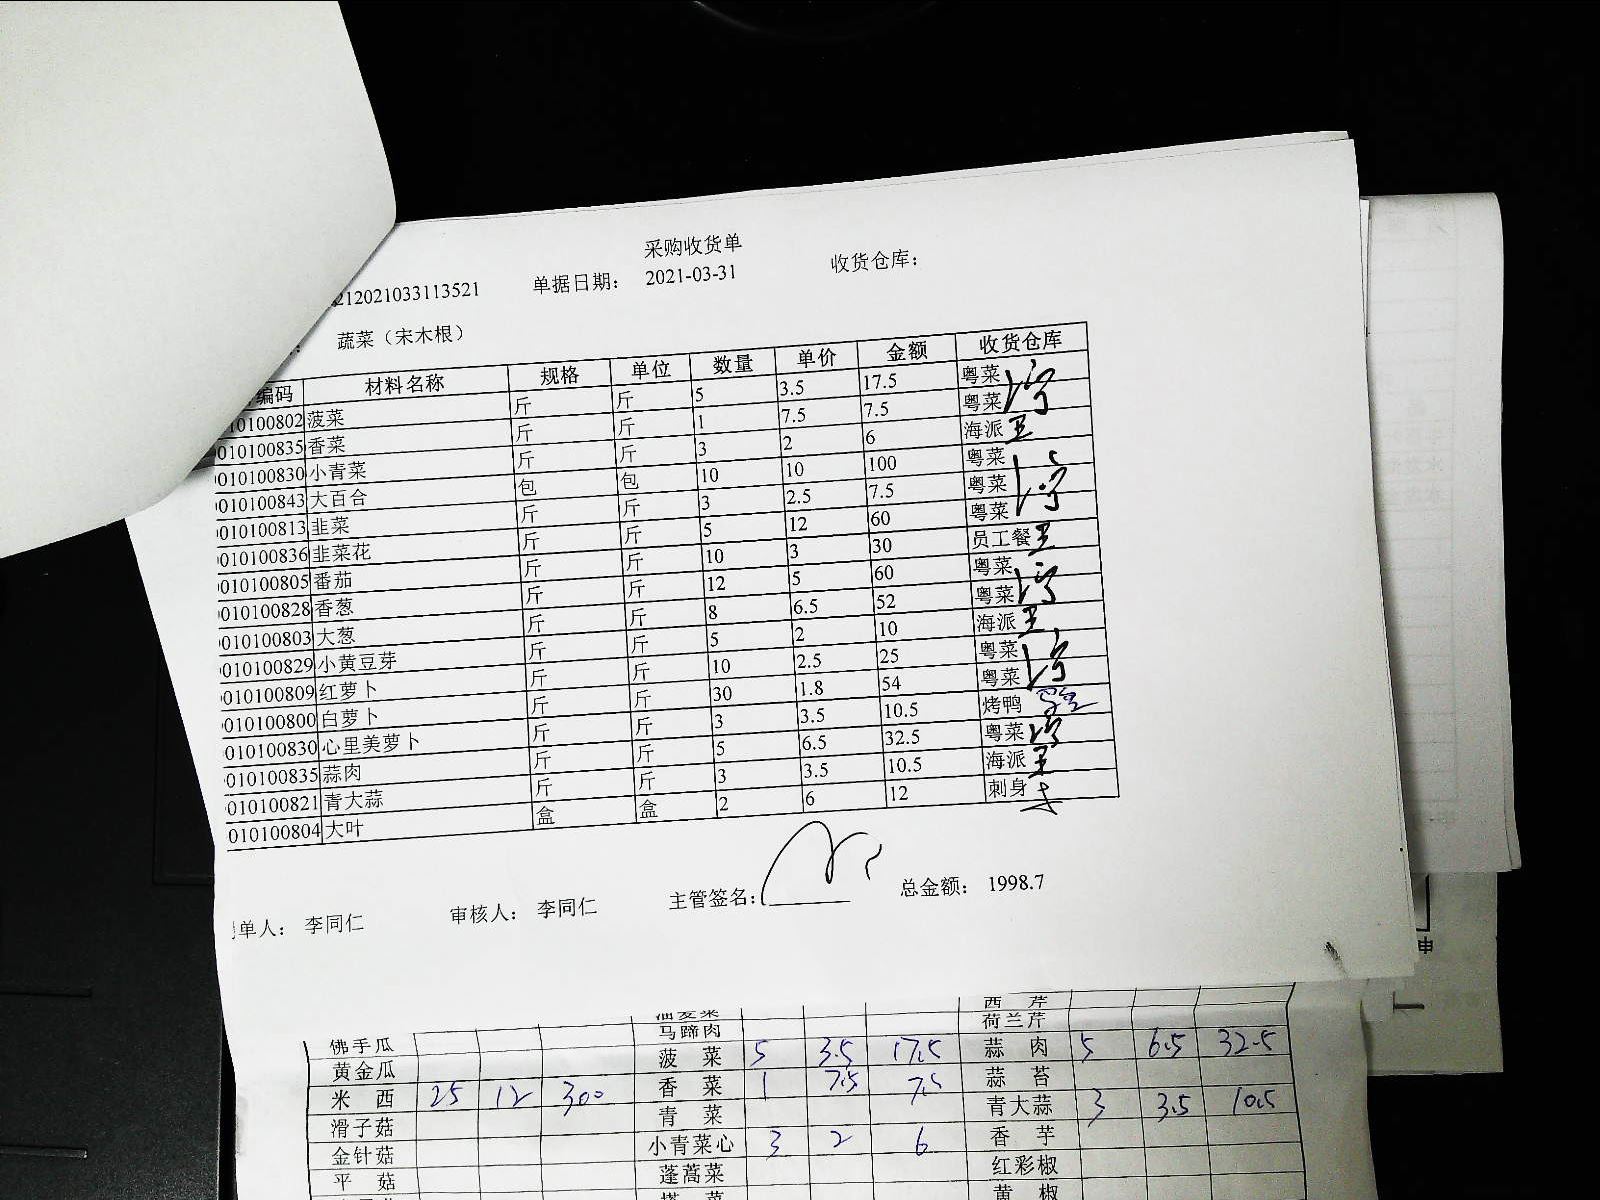 采购收货单
212021033113521 单据日期: 2021-03-31 收货仓库:
蔬菜（宋木根）
编码 材料名称 规格 单位 数量 单价 金额 收货仓库
10100802 菠菜 斤 斤 5 3.5 17.5 粤菜
010100835 香菜 斤 斤 1 7.5 7.5 粤菜
010100830 小青菜 斤 斤 3 2 6 海派 王
010100843 大百合 包 包 10 10 100 粤菜
010100813 韭菜 斤 斤 3 2.5 7.5 粤菜
010100836 韭菜花 斤 斤 5 12 60 粤菜
010100805 番茄 斤 斤 10 3 30 员工餐 王
010100828 香葱 斤 斤 12 5 60 粤菜
010100803 大葱 斤 斤 8 6.5 52 粤菜
010100829 小黄豆芽 斤 斤 5 2 10 海派 王
010100809 红萝卜 斤 斤 10 2.5 25 粤菜
010100800 白萝卜 斤 斤 30 1.8 54 粤菜
010100830 心里美萝卜 斤 斤 3 3.5 10.5 烤鸭
010100835 蒜肉 斤 斤 5 6.5 32.5 粤菜
010100821 青大蒜 斤 斤 3 3.5 10.5 海派 王
010100804 大叶 盒 盒 2 6 12 刺身
单人: 李同仁 审核人: 李同仁 主管签名: 总金额: 1998.7
西芹
佛手瓜 马蹄肉 荷兰芹
黄金瓜 菠菜 5 3.5 17.5 蒜肉 5 6.5 32.5
米西 25 12 300 香菜 1 7.5 7.5 蒜苔
滑子菇 青菜 青大蒜 3 3.5 10.5
金针菇 小青菜心 3 2 6 香芋
平菇 蓬蒿菜 红彩椒
黄椒